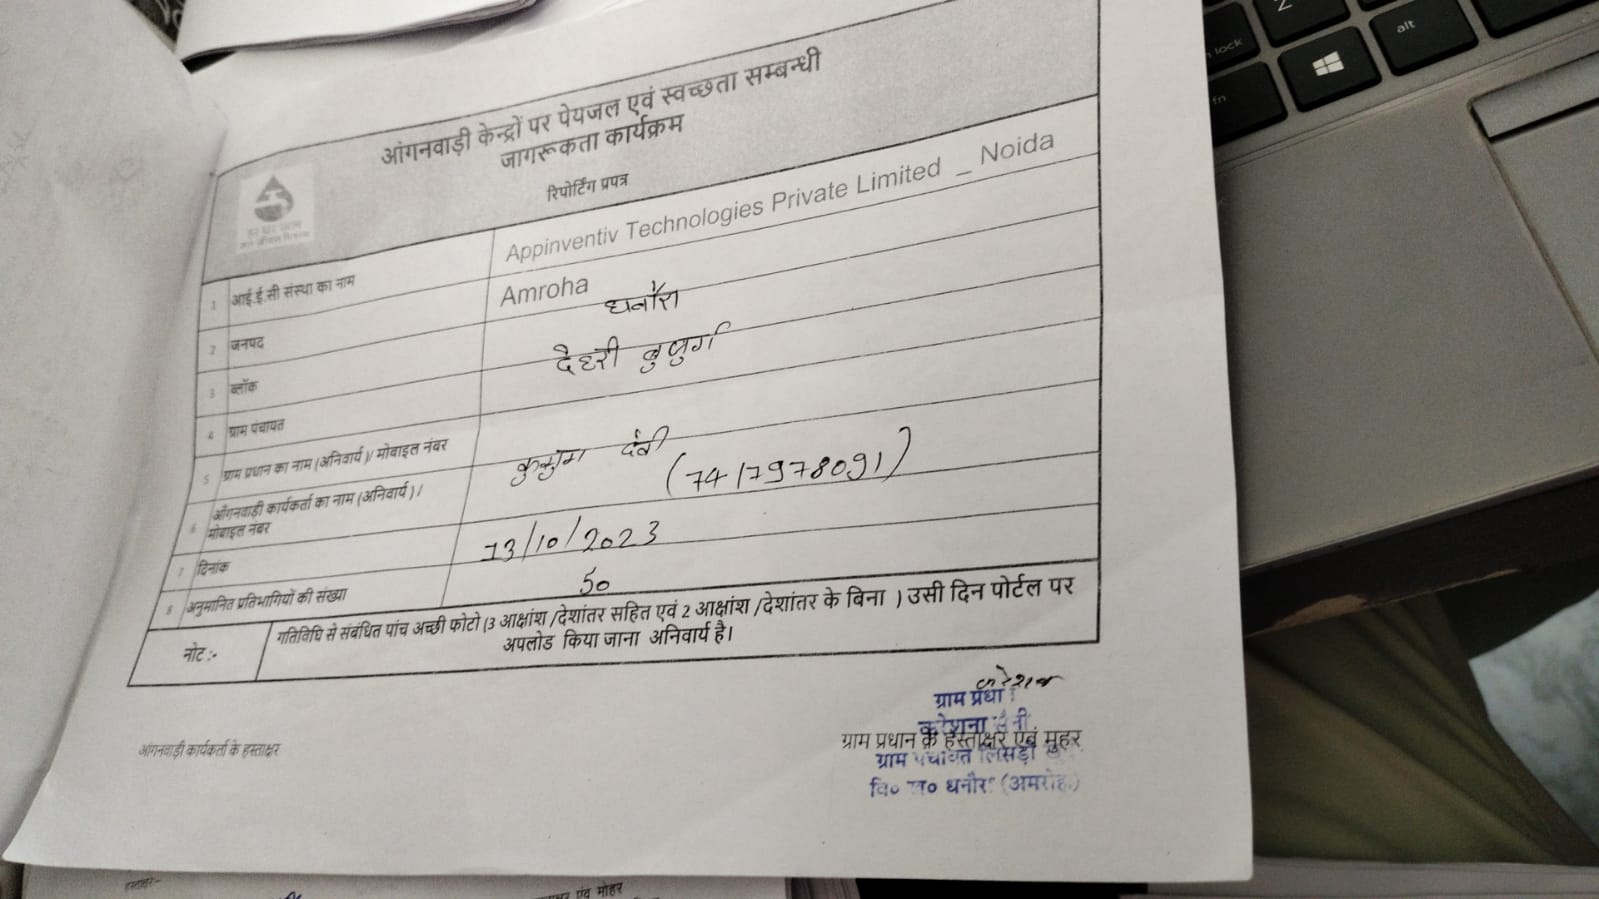 आंगनवाड़ी केन्द्रों पर पेयजल एवं स्वच्छता सम्बन्धी
जागरूकता कार्यक्रम
रिपोर्टिंग प्रपत्र
हर घर जल
जल जीवन मिशन
1 आई.ई.सी संस्था का नाम Appinventiv Technologies Private Limited _ Noida
2 जनपद Amroha
3 ब्लॉक धनौरा
4 ग्राम पंचायत देहरी बुजुर्ग
5 ग्राम प्रधान का नाम (अनिवार्य)/ मोबाइल नंबर
6 आँगनवाड़ी कार्यकर्ता का नाम (अनिवार्य ) /
मोबाइल नंबर देवी (7417978091)
7 दिनांक 13/10/2023
8 अनुमानित प्रतिभागियों की संख्या 50
नोट :- गतिविधि से संबंधित पांच अच्छी फोटो (3 आक्षांश /देशांतर सहित एवं 2 आक्षांश /देशांतर के बिना ) उसी दिन पोर्टल पर
अपलोड किया जाना अनिवार्य है।
ग्राम प्रधा
आंगनवाड़ी कार्यकर्ता के हस्ताक्षर
ग्राम प्रधान के हस्ताक्षर एवं मुहर
ग्राम पंचायत लिसड़ी
वि० ख० धनौरा (अमरोहा)
हस्ताक्षर:-
एंव मोहर